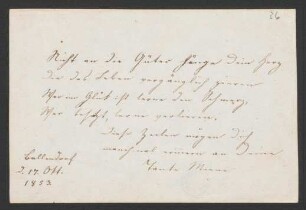 36
Nicht an die Güter hänge dein Herz
Die das Leben vergänglich zieren
Wer im Glück ist lerne den Schmerz,
Wer besitzt, lerne verlieren.
Diese Zeilen mögen Dich
manchmal erinnern an Deine
Tante Minna
d. 17. Okt.
1853